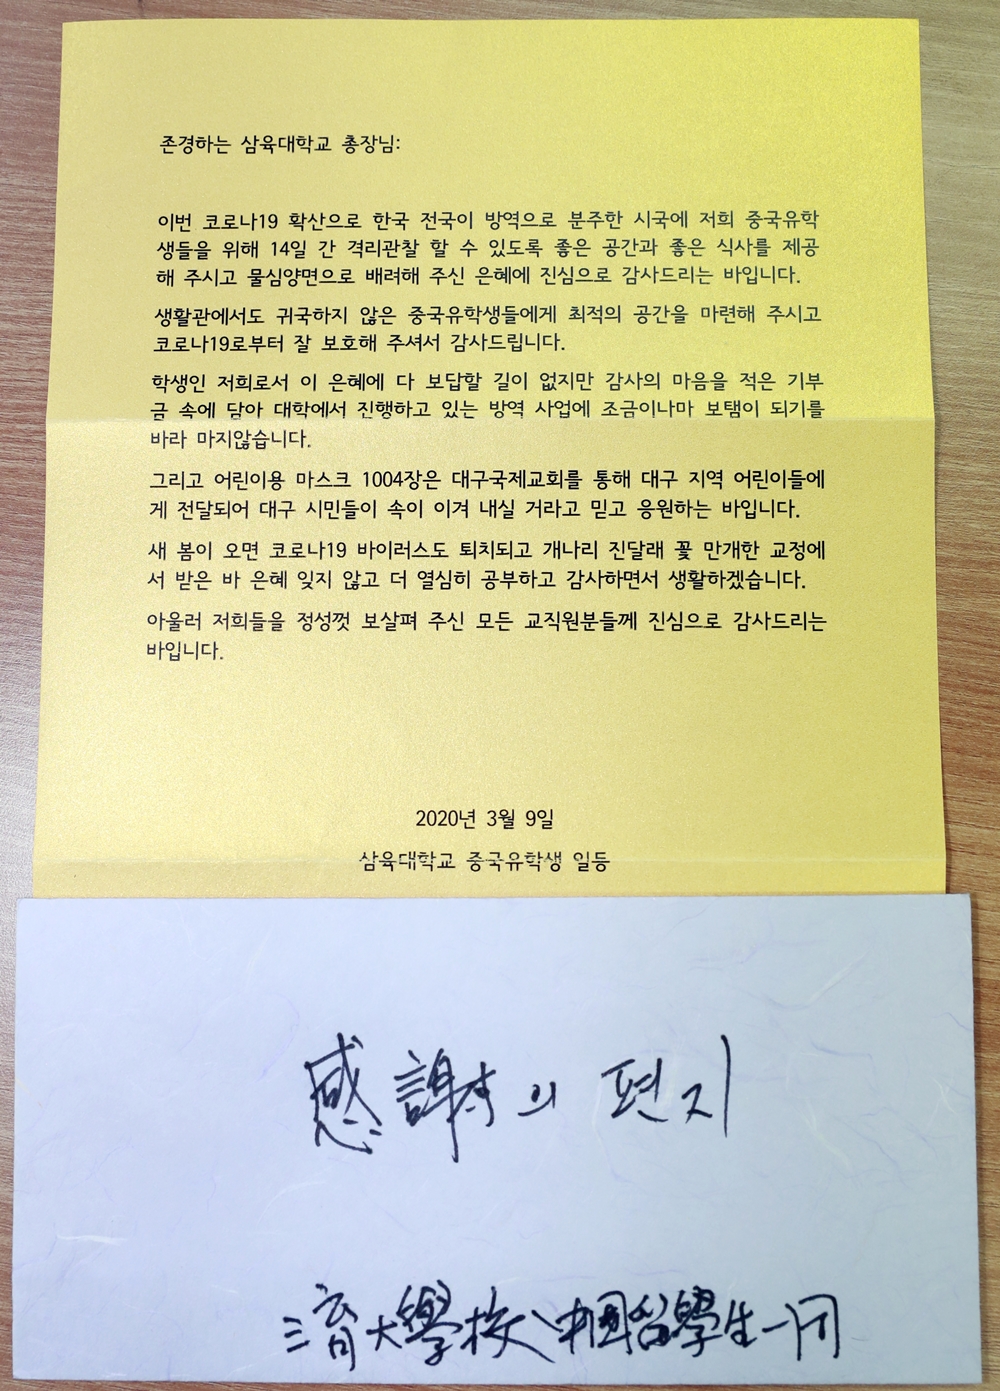 존경하는 삼육대학교 총장님:
이번 코로나19 확산으로 한국 전국이 방역으로 분주한 시국에 저희 중국유학
생들을 위해 14일 간 격리관찰 할 수 있도록 좋은 공간과 좋은 식사를 제공
해 주시고 물심양면으로 배려해 주신 은혜에 진심으로 감사드리는 바입니다.
생활관에서도 귀국하지 않은 중국유학생들에게 최적의 공간을 마련해 주시고
코로나19로부터 잘 보호해 주셔서 감사드립니다.
학생인 저희로서 이 은혜에 다 보답할 길이 없지만 감사의 마음을 적은 기부
금 속에 담아 대학에서 진행하고 있는 방역 사업에 조금이나마 보탬이 되기를
바라 마지않습니다.
그리고 어린이용 마스크 1004장은 대구국제교회를 통해 대구 지역 어린이들에
게 전달되어 대구 시민들이 속이 이겨 내실 거라고 믿고 응원하는 바입니다.
새 봄이 오면 코로나19 바이러스도 퇴치되고 개나리 진달래 꽃 만개한 교정에
서 받은 바 은혜 잊지 않고 더 열심히 공부하고 감사하면서 생활하겠습니다.
아울러 저희들을 정성껏 보살펴 주신 모든 교직원분들께 진심으로 감사드리는
바입니다.
2020년 3월 9일
삼육대학교 중국유학생 일등
感謝의 편지
三育大學校 中國留學生一同